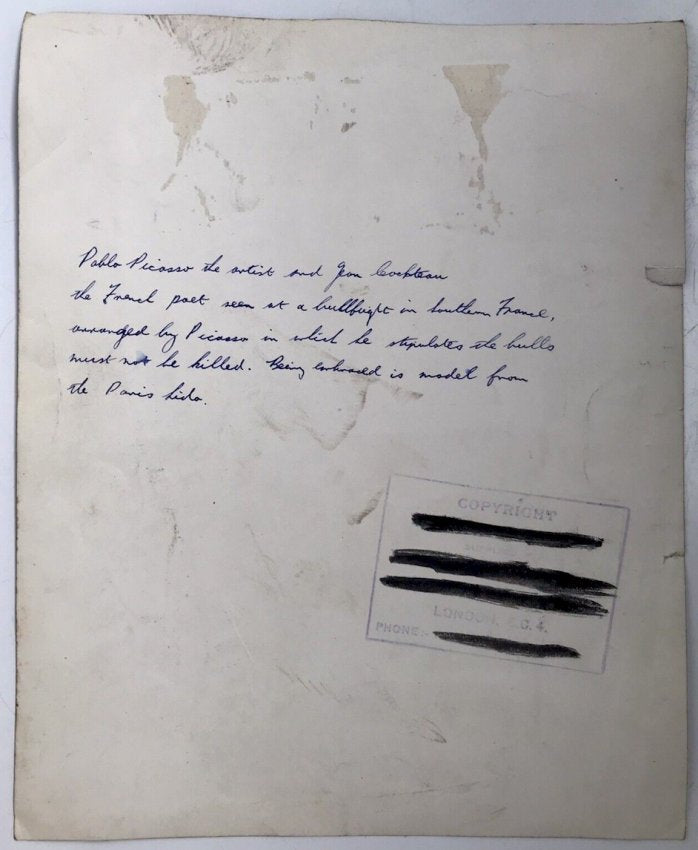 Pablo Picasso the artist and Jean Cochteau
the French poet seen at a bullfight in Southern France,
arranged by Picasso in which he stipulates the bulls
must not be killed. Being embraced is model from
the Paris Lido.
COPYRIGHT
LONDON, E.C.4.
PHONE:-